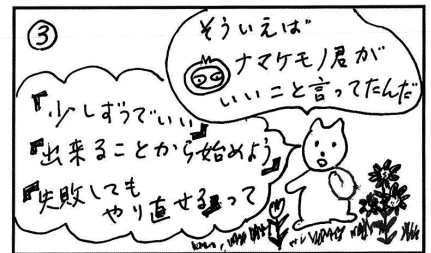 ③
そういえば
ナマケモノ君が
いいこと言ってたんだ
『少しずうでいい』
『出来ることから始めよう』
『失敗しても
やり直せる』って